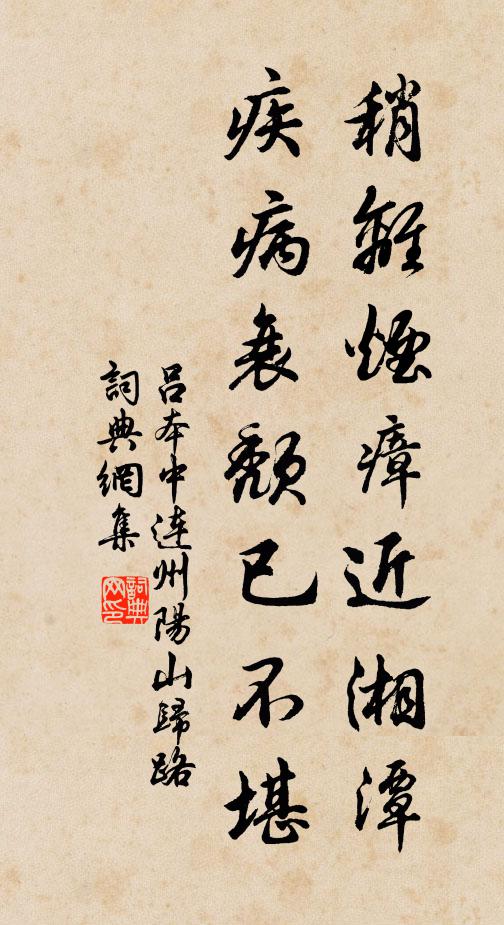 稍離煙瘴近湘潭
疾病衰頹已不堪
呂本中連州陽山歸路
詞典網集
詞典網印